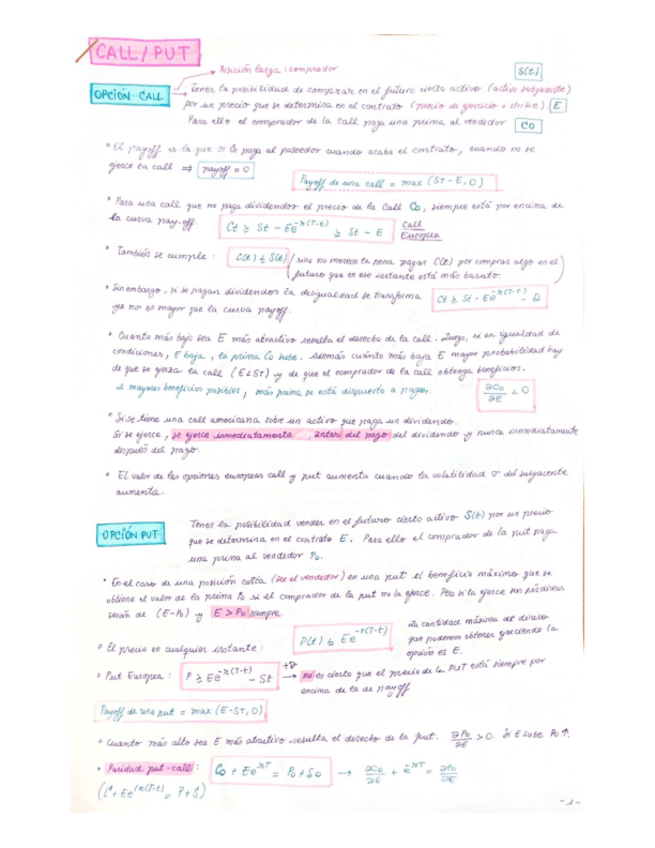 CALL / PUT
Posición larga: comprador
S(t)
OPCIÓN CALL
Tener la posibilidad de comprar en el futuro cierto activo (activo subyacente)
por un precio que se determina en el contrato (precio de ejercicio o strike) E
Para ello el comprador de la call paga una prima al vendedor C0
• El payoff es lo que se le paga al poseedor cuando acaba el contrato, cuando no se
ejerce la call ⇒ payoff = 0
Payoff de una call = max (ST - E, 0)
• Para una call que no paga dividendos el precio de la Call C0, siempre está por encima de
la curva pay-off.
Ct ≥ St - Ee^-r(T-t) ≥ St - E
Call
Europea
• También se cumple: C(t) ≤ S(t) (sino no merece la pena pagar C(t) por comprar algo en el
futuro que en ese instante está más barato.)
• Sin embargo, si se pagan dividendos la desigualdad se transforma Ct ≥ St - Ee^-r(T-t) - D
ya no es mayor que la curva payoff.
• Cuanto más bajo sea E más atractivo resulta el derecho de la call. Luego, si en igualdad de
condiciones, E baja, la prima C0 sube. Además cuánto más baja E mayor probabilidad hay
de que se ejerza la call (E<ST) y de que el comprador de la call obtenga beneficios.
A mayores beneficios posibles, más prima se está dispuesto a pagar.
∂C0/∂E < 0
• Si se tiene una call americana sobre un activo que paga un dividendo.
Si se ejerce, se ejerce inmediatamente antes del pago del dividendo y nunca inmediatamente
después del pago.
• El valor de las opciones europeas call y put aumenta cuando la volatilidad σ del subyacente
aumenta.
OPCIÓN PUT
Tener la posibilidad vender en el futuro cierto activo S(t) por un precio
que se determina en el contrato E. Para ello el comprador de la put paga
una prima al vendedor P0.
• En el caso de una posición corta (ser el vendedor) en una put el beneficio máximo que se
obtiene el valor de la prima P0 si el comprador de la put no la ejerce. Pero si la ejerce sus pérdidas
serán de (E-P0) y E > P0 siempre.
• El precio en cualquier instante: P(t) ≤ Ee^-r(T-t)
La cantidad máxima de dinero
que podemos obtener ejerciendo la
opción es E.
• Put Europea: P ≥ Ee^-r(T-t) - St → no es cierto que el precio de la PUT está siempre por
encima de la de payoff
Payoff de una put = max (E - ST, 0)
• Cuanto más alto sea E más atractivo resulta el derecho de la put. ∂P0/∂E > 0. Si E sube P0 ↑.
• Paridad put-call: C0 + Ee^-rT = P0 + S0 → ∂C0/∂E + e^-rT = ∂P0/∂E
(C + Ee^(-r(T-t)) = P + S)
-1-